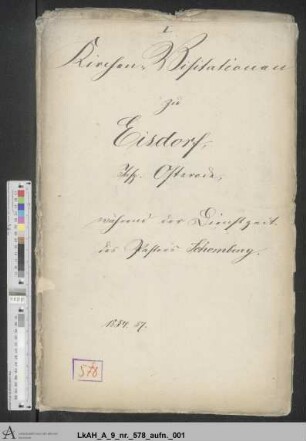 I.
Kirchen-Visitationen
zu
Eisdorf,
Insp. Osterode,
während der Dienstzeit
des Pastors Schomburg.
578
LkAH_A_9_nr._578_aufn._001